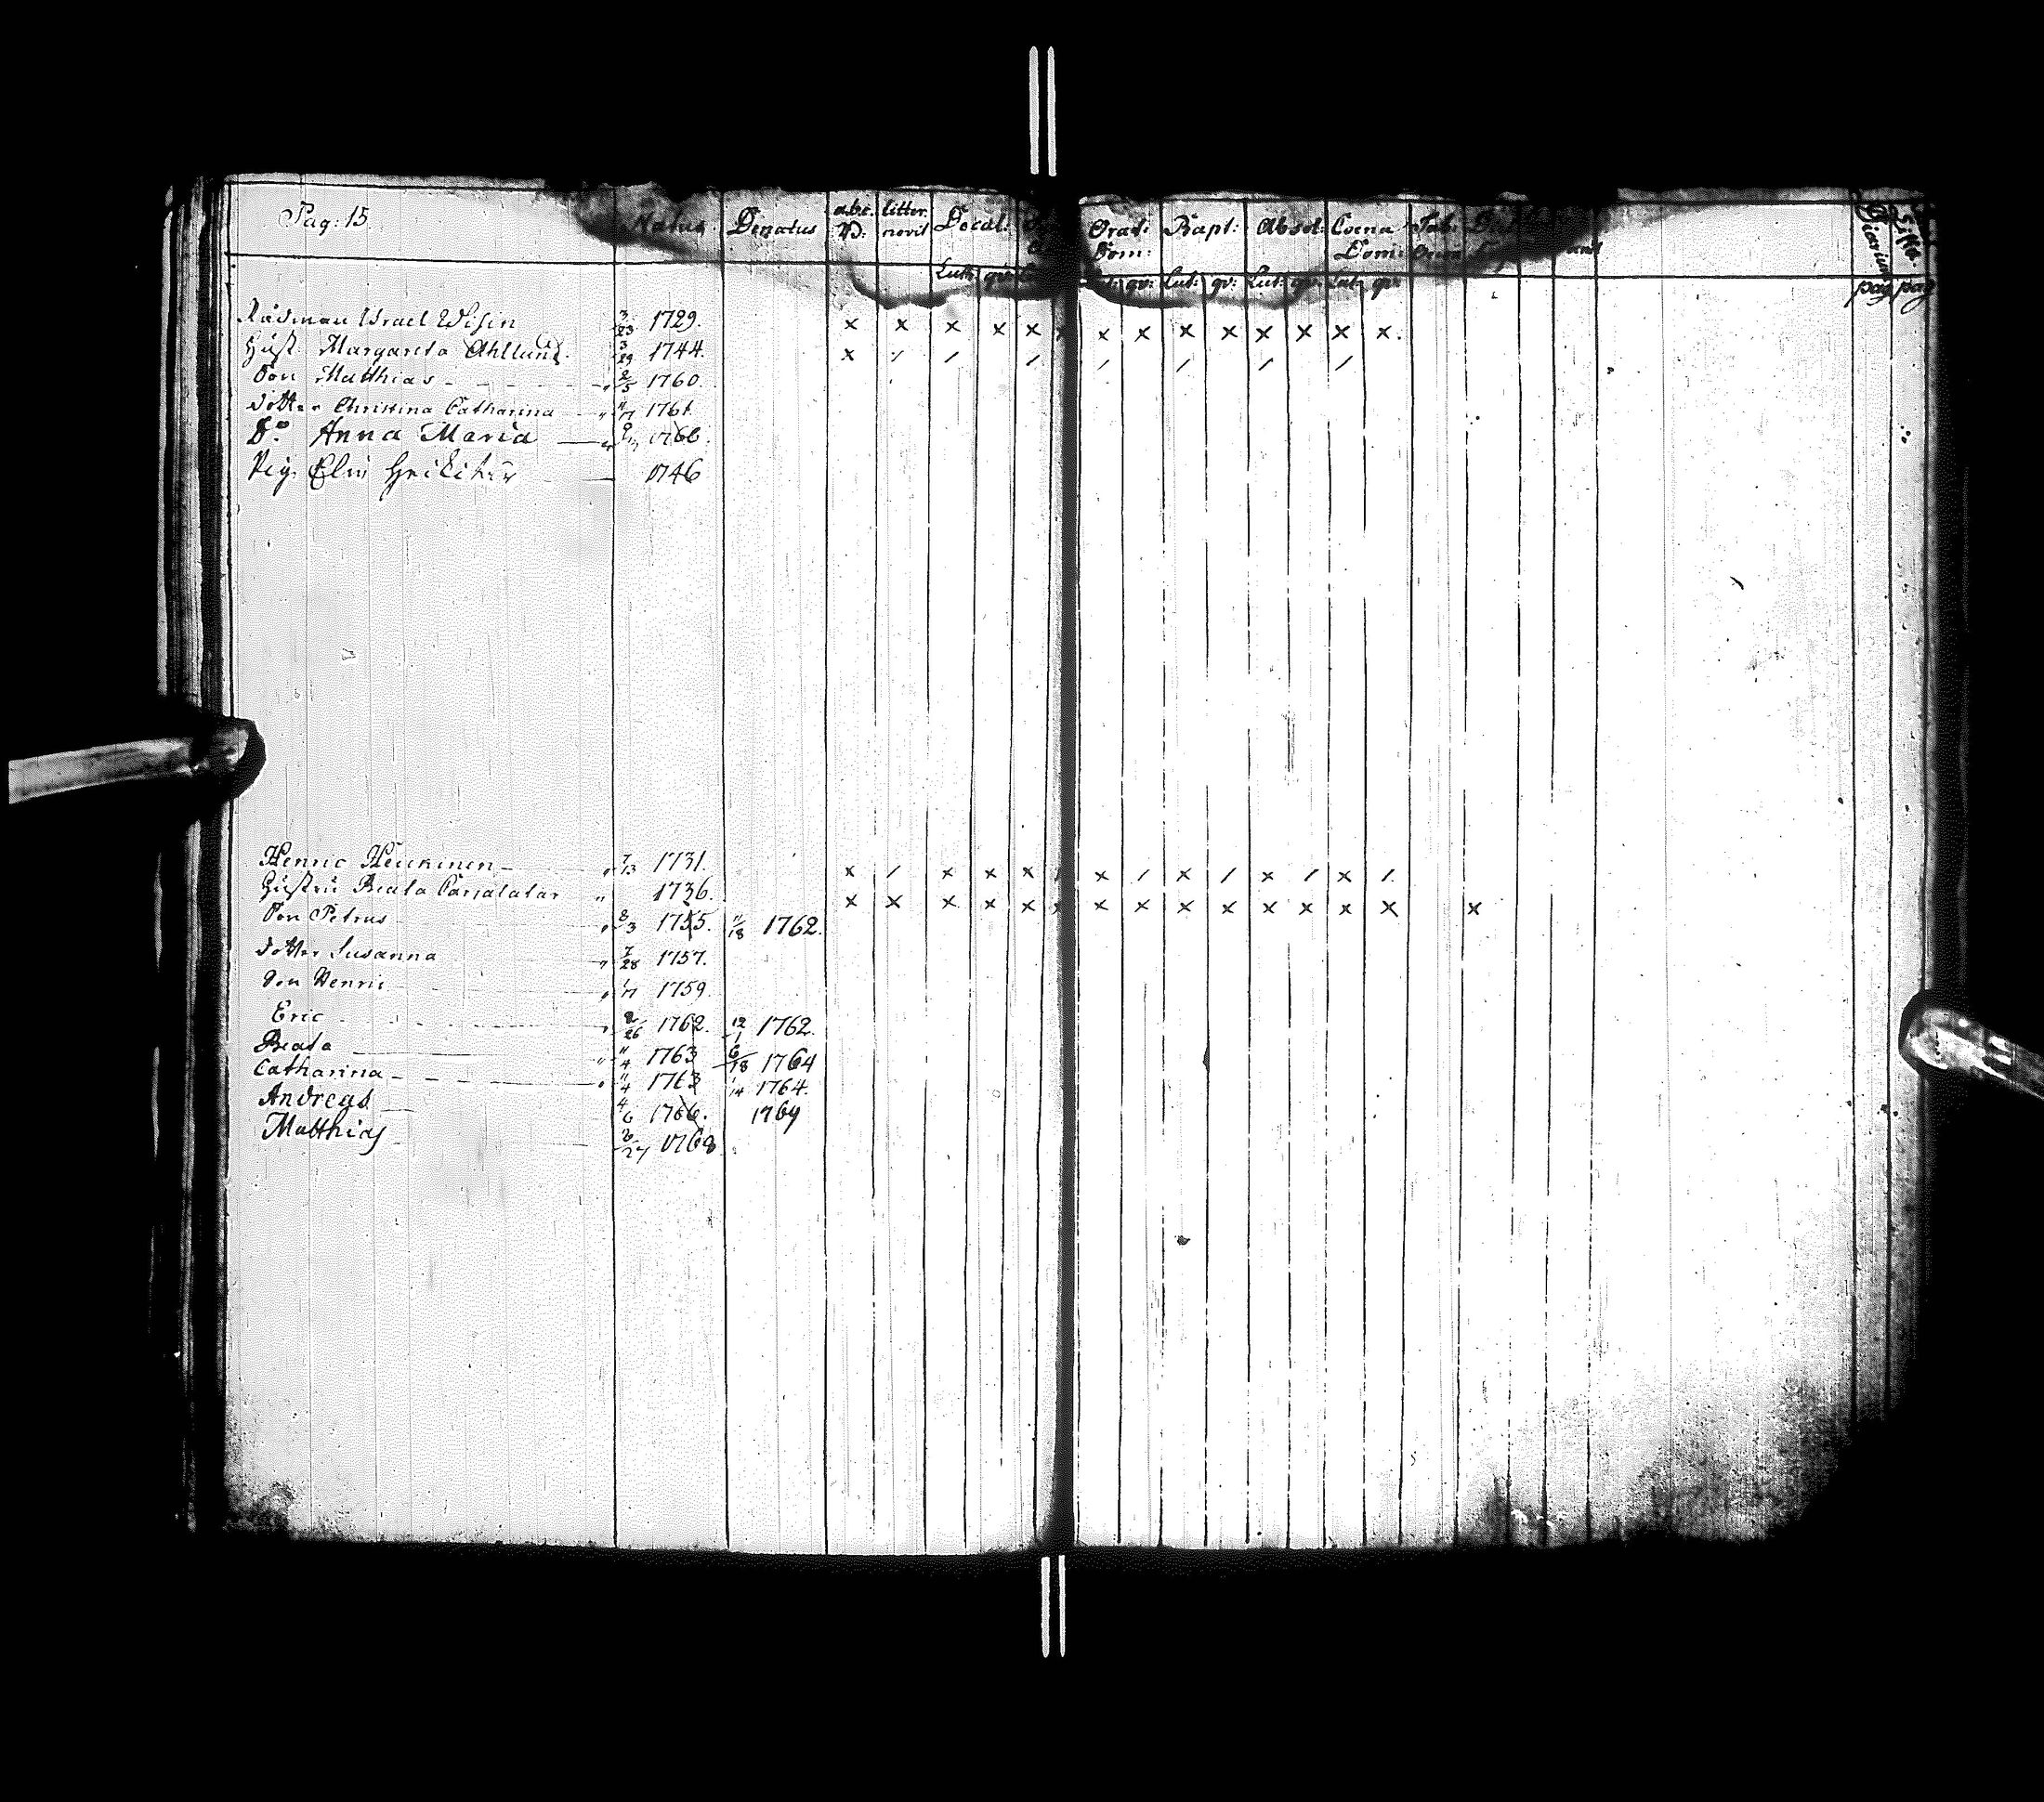 Pag: 15. Natus Denatus abc. litter. Decal: Orat: Bapt: Absol: Coena Tab:
D: novit Dom: Dom: Diarium
Luth: qv: qv: Lut: qv: Lut: qv: Lut: qv: pag pag
Rådman Israel Wisin 3/23 1729. x x x x x x x x x x x x x x
Hust. Margareta Ahllund. 3/29 1744. x / / / / / / /
Son Matthias 2/5 1760.
dotter Christina Catharina 1761.
Do Anna Maria 1766.
Pig. Elin 1746
Henric Heickinen 7/13 1731. x / x x x / x / x / x / x /
Hustru Beata Carjalatar 1736. x x x x x x x x x x x x x x x
Son Petrus 8/3 1755. 11/18 1762.
dotter Susanna 7/28 1757.
Son Henric 1759.
Eric 8/26 1762. 12/1 1762.
Beata 11/4 1763 6/18 1764
Catharina 11/4 1763 1/14 1764.
Andreas 4/6 1766. 1769
Matthias 2/27 1768